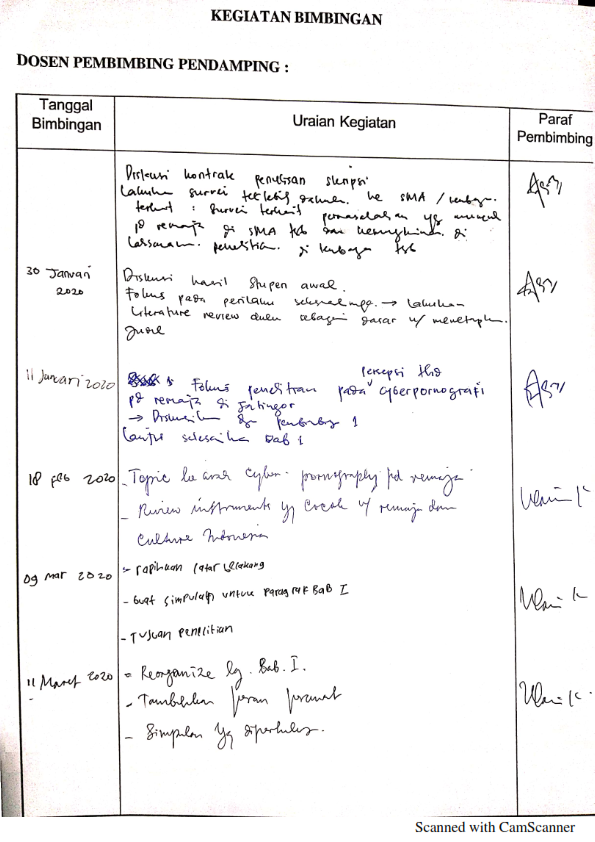 KEGIATAN BIMBINGAN
DOSEN PEMBIMBING PENDAMPING :
Tanggal Bimbingan
Uraian Kegiatan
Paraf Pembimbing
Diskusi kontrak penulisan skripsi
Lakukan survei terlebih ke SMA /
terkait : survei terkait permasalahan yg muncul
pd remaja di SMA tsb dan kemungkinan di
penelitian di tsb
30 Januari 2020
Diskusi hasil stupen awal.
Fokus pada perilaku seksualnya. → Lakukan
Literature review dulu sebagai dasar u/
judul
11 Januari 2020
persepsi thd
Fokus penelitian pada cyberpornografi
pd remaja di Jatinangor
→ Diskusikan dg pembimbing 1
Lanjut selesaikan Bab 1
18 Feb 2020
- Topic ke arah cyber pornography pd remaja
- Review instruments yg cocok u/ remaja dan
culture Indonesia
09 Mar 2020
- rapihkan latar belakang
- buat simpulan untuk paragraf BAB I
- Tujuan penelitian
11 Maret 2020
- Reorganize lg. Bab. I.
- Tambahkan peran perawat
- Simpulan yg diperhalus.
Scanned with CamScanner